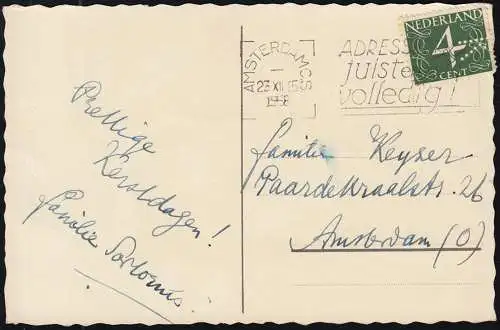 Prettige
Kerstdagen!
familie
AMSTERDAM CS
23 XII 15
1958
ADRESS
juiste
volledig!
NEDERLAND
4
CENT
familie Keyser
Paardekraalstr. 26
Amsterdam (O)